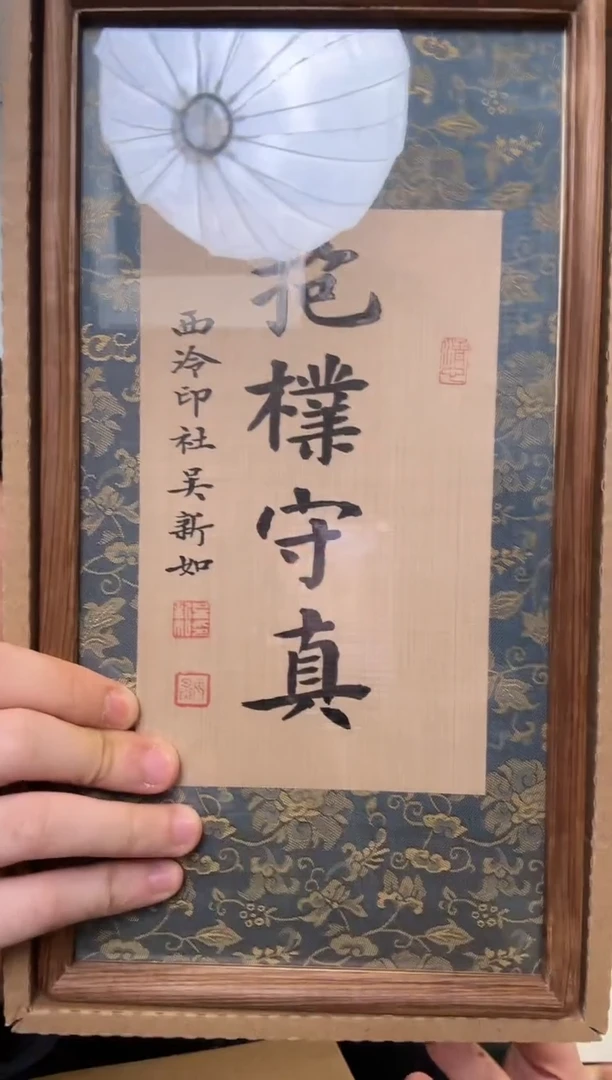 抱樸守真
西泠印社吴新如